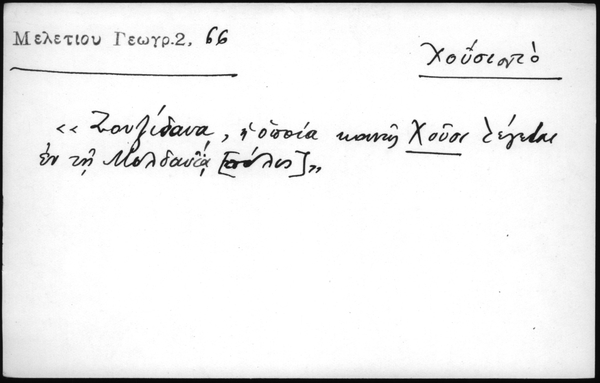 Μελετίου Γεωγρ.2, 66
Χοῦσι, τὸ
«Σουζίδανα, ἡ ὁποία κοινῶς Χοῦσι λέγεται
ἐν τῇ Μολδαυίᾳ [πόλις]»